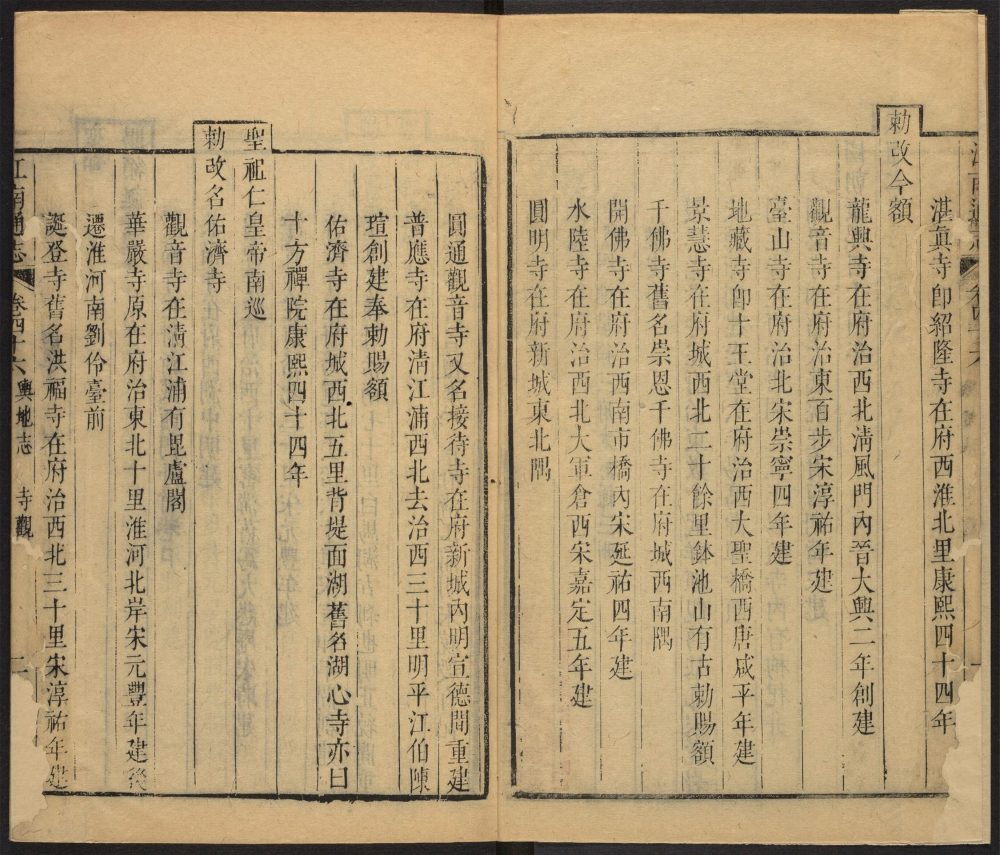 湛眞寺卽紹隆寺在府西淮北里康熙四十四年
勅改今額
龍興寺在府治西北淸風門內晉大興二年創建
觀音寺在府治東百步宋淳祐年建
臺山寺在府治北宋崇寧四年建
地藏寺卽十王堂在府治西大聖橋西唐咸平年建
景慧寺在府城西北二十餘里鉢池山有古勅賜額
千佛寺舊名崇恩千佛寺在府城西南隅
開佛寺在府治西南市橋內宋延祐四年建
水陸寺在府治西北大軍倉西宋嘉定五年建
圓明寺在府新城東北隅
圓通觀音寺又名接待寺在府新城內明宣德間重建
普應寺在府淸江浦西北去治西三十里明平江伯陳
瑄創建奉勅賜額
佑濟寺在府城西北五里背堤面湖舊名湖心寺亦曰
十方禪院康熙四十四年
聖祖仁皇帝南巡
勅改名佑濟寺
觀音寺在淸江浦有毘盧閣
華嚴寺原在府治東北十里淮河北岸宋元豐年建後
遷淮河南劉伶臺前
誕登寺舊名洪福寺在府治西北三十里宋淳祐年建
江南通志 卷四十六 輿地志 寺觀 二